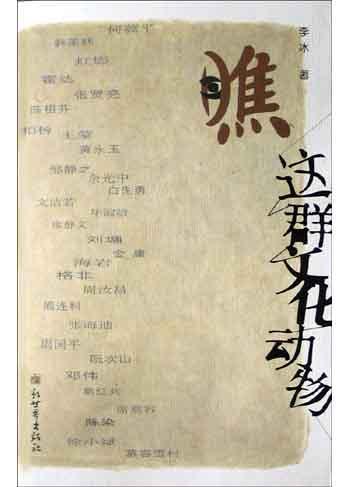 李冰 著
瞧
这群文化动物
何冀平
韩美林
虹影
霍达
张贤亮
陈祖芬
柏杨
王蒙
黄永玉
邹静之
余光中
白先勇
文洁若
刘墉
金庸
海岩
格非
周汝昌
阎连科
张海迪
周国平
阮次山
邓伟
葛红兵
席慕容
陈染
徐小斌
慕容雪村
新世界出版社